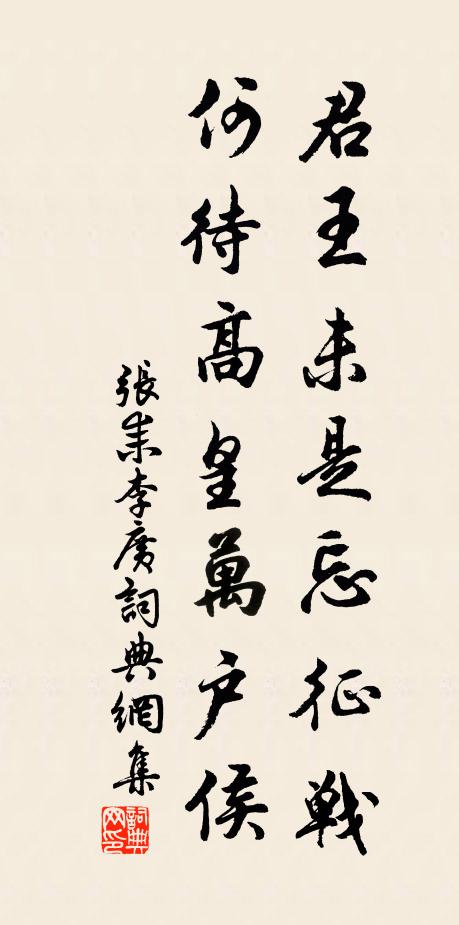 君王未是忘征戰
何待高皇萬户侯
張耒李廣詞典網集
詞典
网印